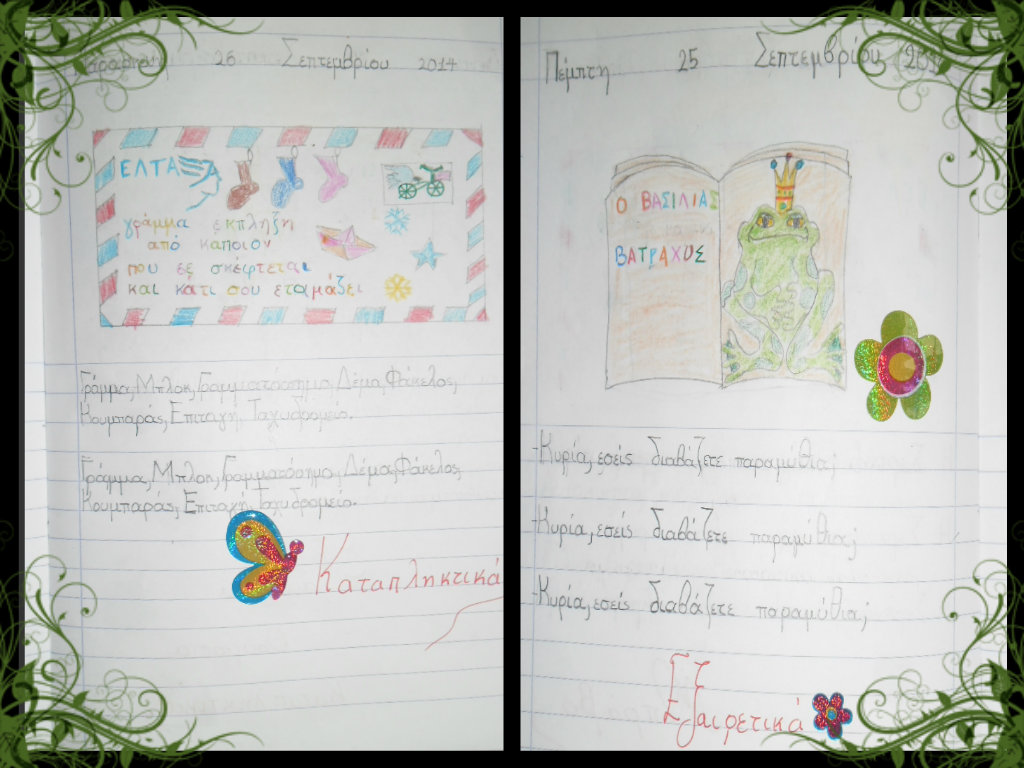 Παρασκευή 26 Σεπτεμβρίου 2014
ΕΛΤΑ
γράμμα εκπληξη
από καποιον
που σε σκέφτεται
και κατι σου εταμάζει
Γράμμα, Μπλοκ, Γραμματόσημο, Δέμα, Φάκελος,
Κουμπαράς, Επιταγή, Ταχυδρομείο.
Γράμμα, Μπλοκ, Γραμματόσημο, Δέμα, Φάκελος,
Κουμπαράς, Επιταγή, Ταχυδρομείο.
Καταπληκτικά
Πέμπτη 25 Σεπτεμβρίου
Ο ΒΑΣΙΛΙΑΣ
ΒΑΤΡΑΧΟΣ
-Κυρία, εσείς διαβάζετε παραμύθια;
-Κυρία, εσείς διαβάζετε παραμύθια;
-Κυρία, εσείς διαβάζετε παραμύθια;
Εξαιρετικά